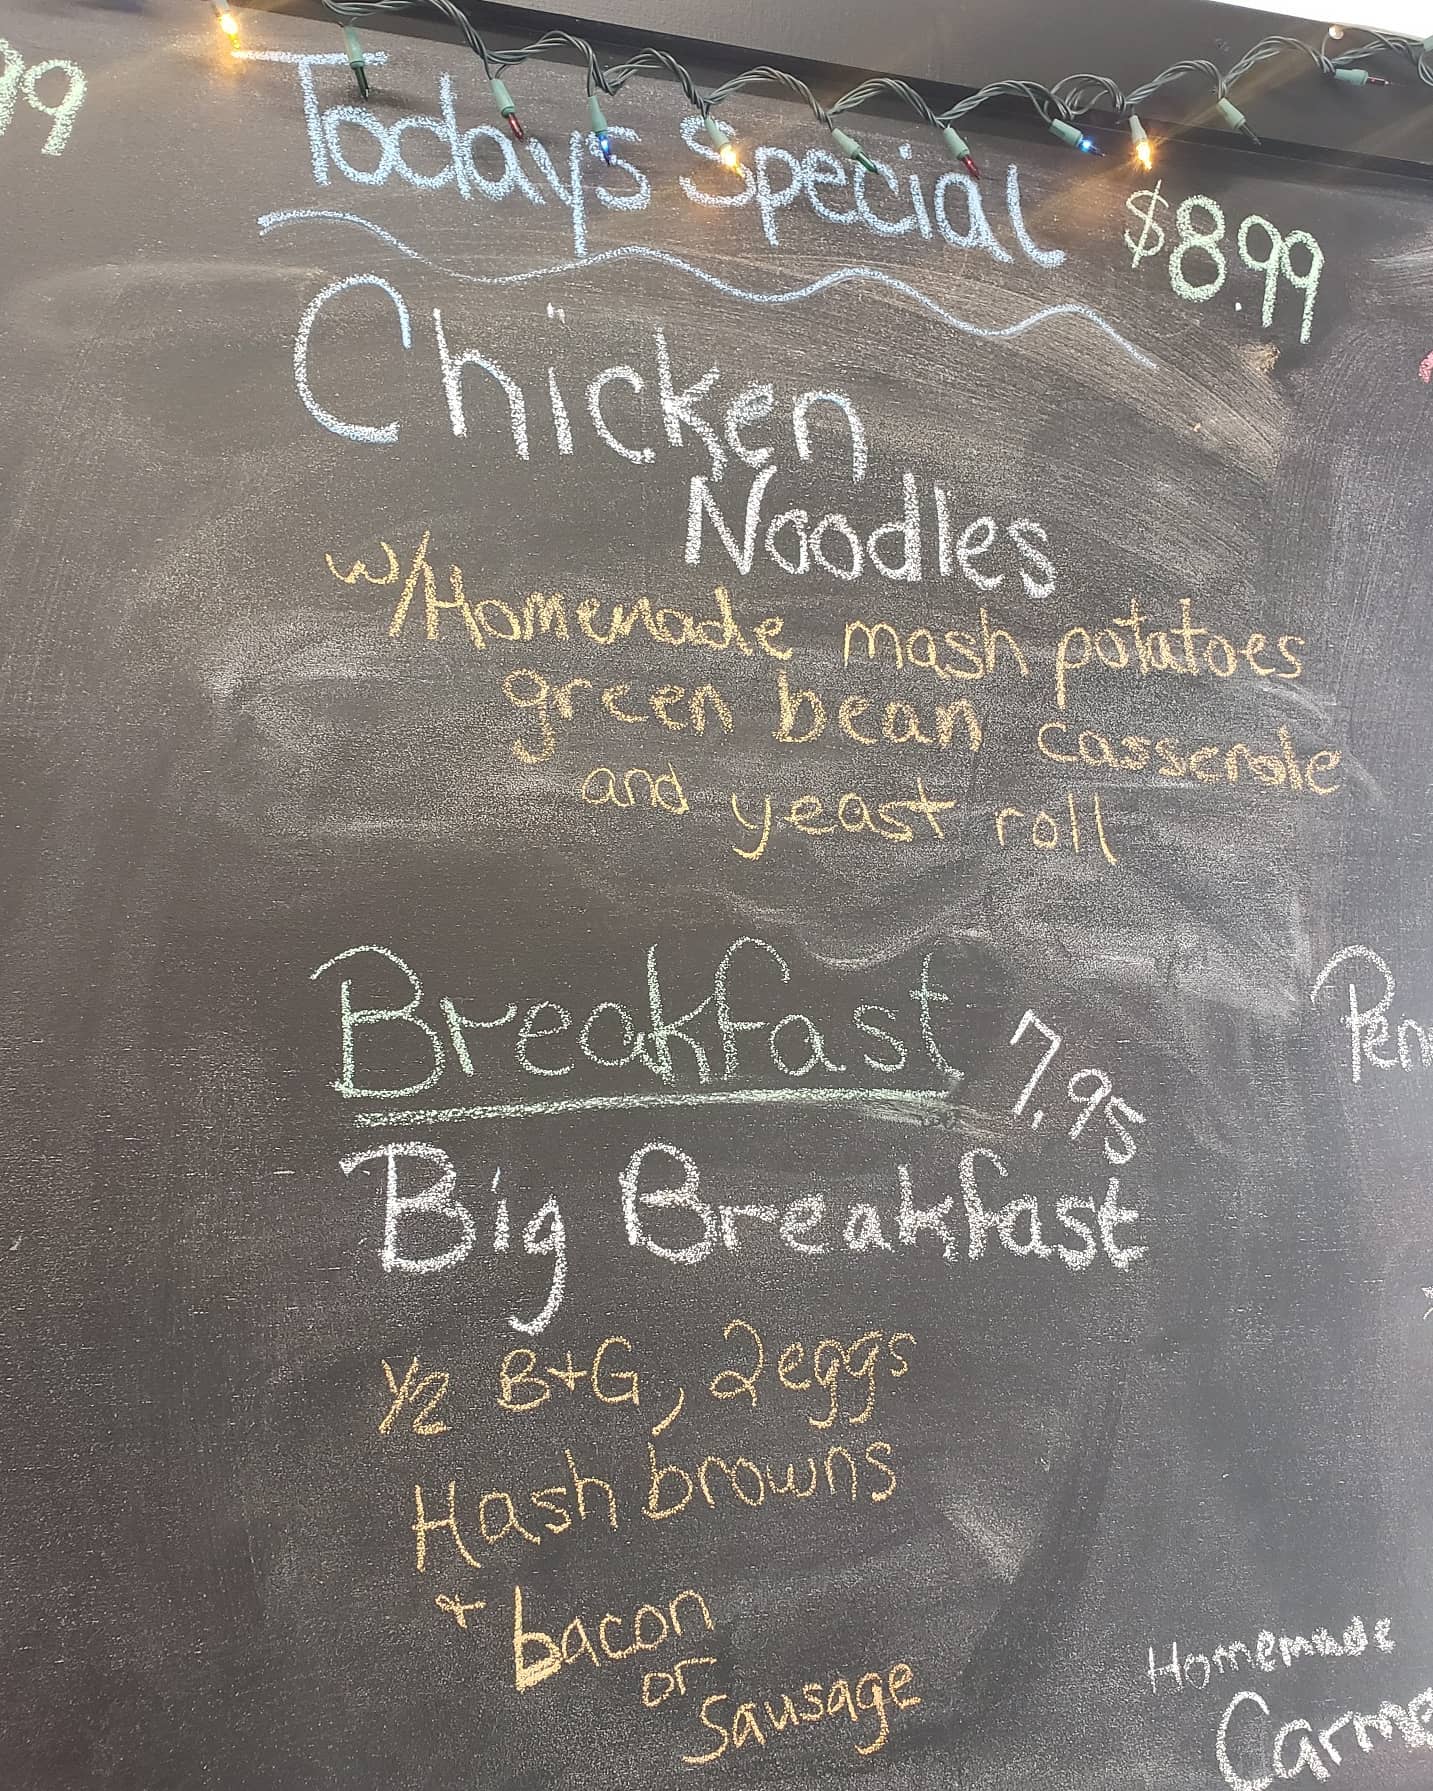 99
Todays Special
$8.99
Chicken
Noodles
w/Homemade mash potatoes
green bean casserole
and yeast roll
Breakfast
7.95
Big Breakfast
1/2 B+G, 2 eggs
Hash browns
+ bacon
or
Sausage
Homemade